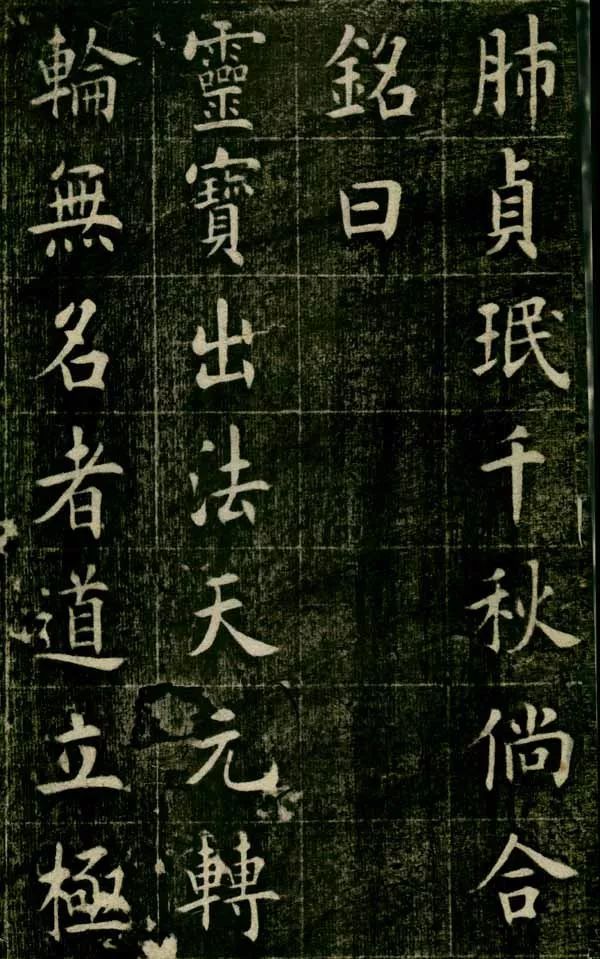 肺貞珉千秋倘合
銘曰
靈寶出法天元轉
輪無名者道立極